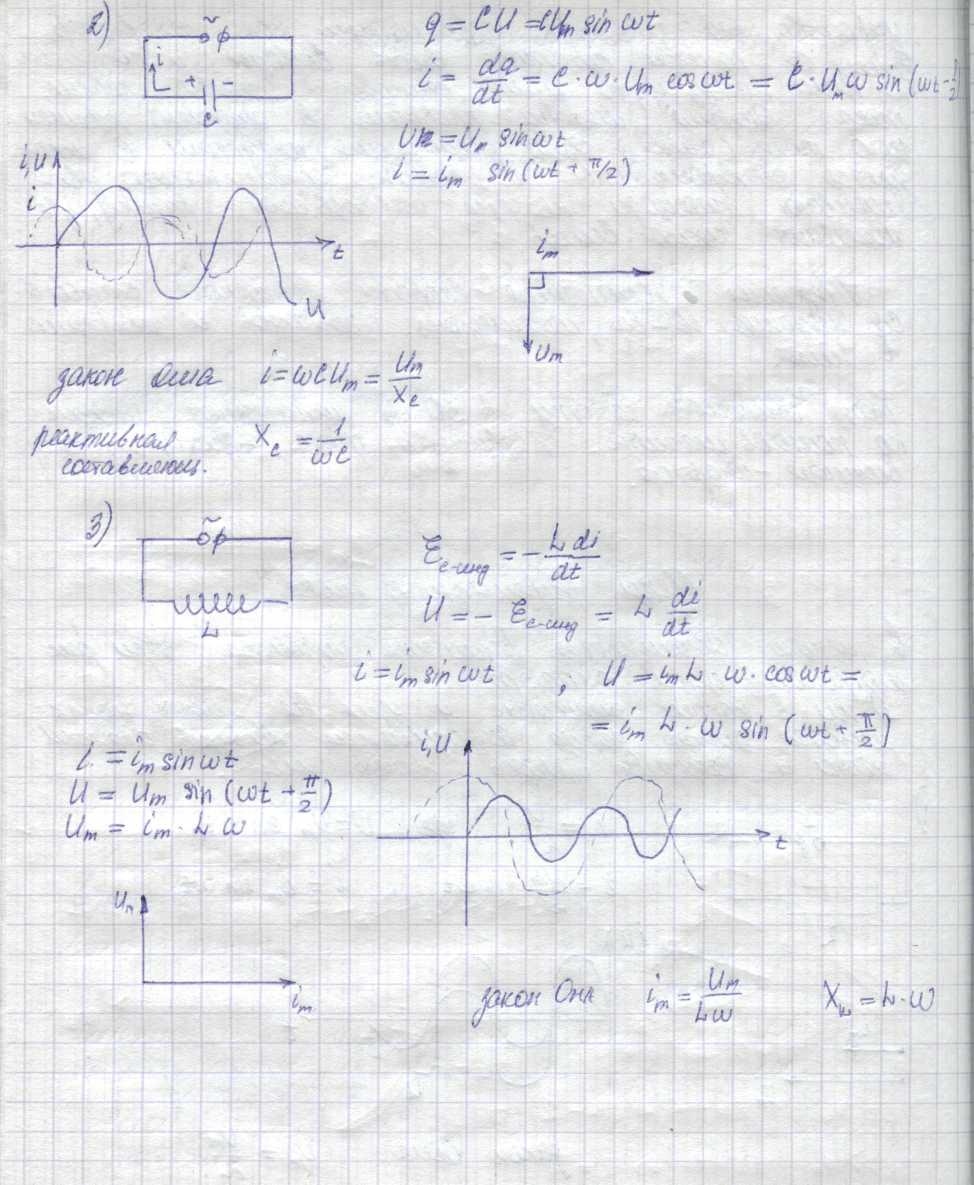 2)
~
q = CU = CUm sin ωt
i
+ −
C
i = dq/dt = C · ω · Um cos ωt = C · Um ω sin (ωt -
U = Um sin ωt
i = im sin (ωt + π/2)
i, U
i
t
U
im
Um
закон Ома i = ωCUm = Um/Xc
реактивная Xc = 1/ωC
составляющ.
3)
~
L
Ɛс-инд = − L di/dt
U = − Ɛс-инд = L di/dt
i = im sin ωt ; U = im L · ω · cos ωt =
= im L · ω sin (ωt + π/2)
i = im sin ωt
U = Um sin (ωt + π/2)
Um = im · L ω
i, U
t
Um
im
закон Ома im = Um/Lω XL = L · ω